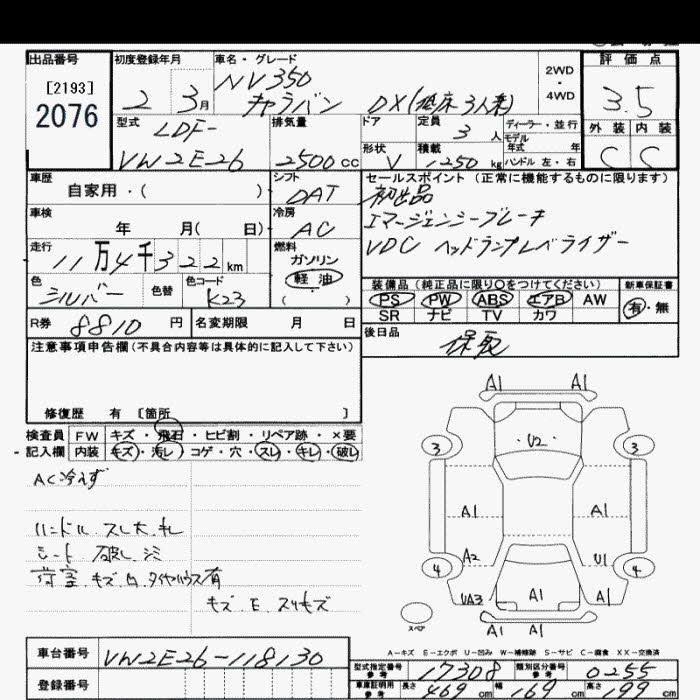 出品番号
[2193]
2076
初度登録年月
2 3月
車名・グレード
NV350
キャラバン DX(低床3人乗)
2WD
・
4WD
評価点
3.5
外装 内装
C C
型式
LDF-
VW2E26
排気量
2500cc
ドア
定員
3人
ディーラー・並行
モデル
年式 年
形状
V
積載
1250kg
ハンドル 左・右
車歴
自家用・( )
シフト
DAT
セールスポイント(正常に機能するものに限ります)
初出品
エマージェンシーブレーキ
VDC ヘッドランプレベライザー
車検
年 月( 日)
冷房
AC
走行
11万4千322km
燃料
ガソリン
軽油
( )
色
シルバー
色替
色コード
K23
装備品(純正品に限り○をつけてください)
PS PW ABS エアB AW
SR ナビ TV カワ
新車保証書
有・無
R券 8810円
名変期限 月 日
後日品
保取
注意事項申告欄(不具合内容等は具体的に記入して下さい)
修復歴 有 [箇所 ]
検査員
記入欄
FW キズ・飛石・ヒビ割・リペア跡・×要
内装 キズ・汚レ・コゲ・穴・スレ・キレ・破レ
AC冷えず
ハンドル スレ大 キレ
シート 破レ シミ
荷室 キズ 凹 タイヤハウス有
キズ E スリキズ
A1 A1
U2
3 3
A1 A1
A2 U1
4 4
UA3 A1 A1
A1 A1
スペア
A-キズ E-エクボ U-凹み W-補修跡 S-サビ C-腐食 XX-交換済
車台番号 VW2E26-118130
登録番号
型式指定番号
参考
17308
類別区分番号
参考
0255
車庫証明用
参考
長さ 469cm 幅 169cm 高さ 199cm